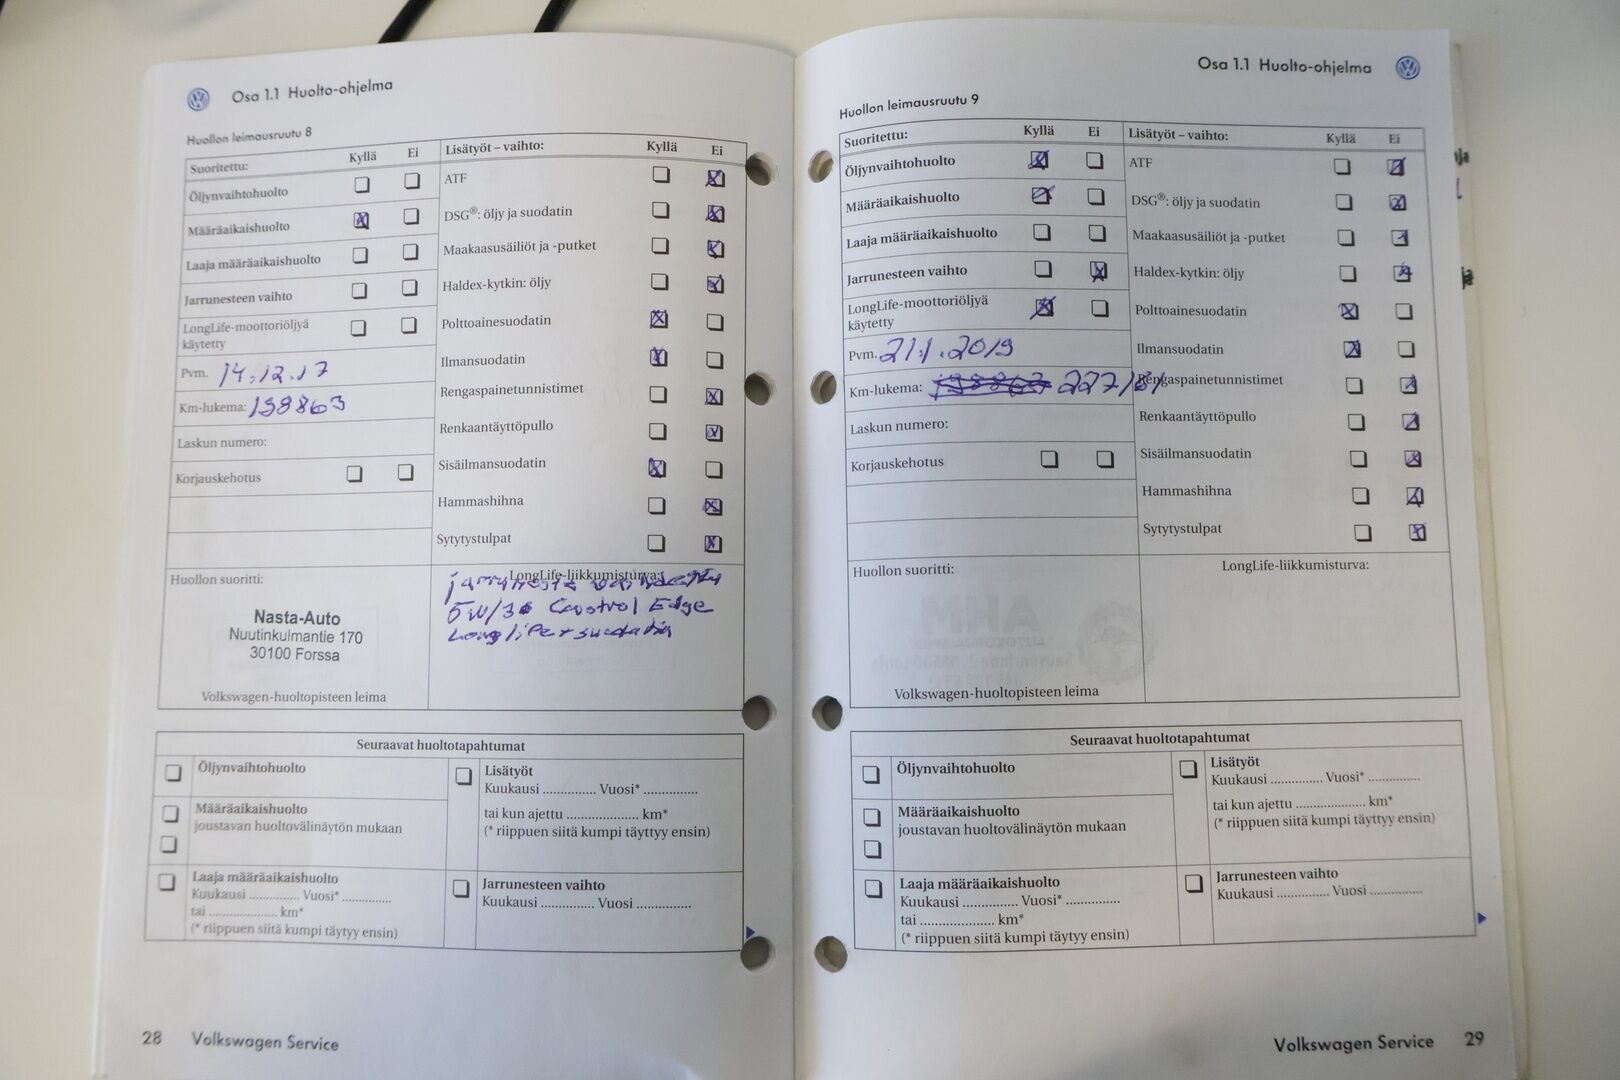 Osa 1.1 Huolto-ohjelma
Huollon leimausruutu 8
Suoritettu: Kyllä Ei
Öljynvaihtohuolto
Määräaikaishuolto
Laaja määräaikaishuolto
Jarrunesteen vaihto
LongLife-moottoriöljyä
käytetty
Pvm. 14.12.17
Km-lukema: 198863
Laskun numero:
Korjauskehotus
Lisätyöt – vaihto: Kyllä Ei
ATF
DSG®: öljy ja suodatin
Maakaasusäiliöt ja -putket
Haldex-kytkin: öljy
Polttoainesuodatin
Ilmansuodatin
Rengaspainetunnistimet
Renkaantäyttöpullo
Sisäilmansuodatin
Hammashihna
Sytytystulpat
Huollon suoritti:
Nasta-Auto
Nuutinkulmantie 170
30100 Forssa
Volkswagen-huoltopisteen leima
LongLife-liikkumisturva:
jarruneste vaihdettu
5W/30 Castrol Edge
Longlife + suodatin
Seuraavat huoltotapahtumat
Öljynvaihtohuolto
Määräaikaishuolto
joustavan huoltovälinäytön mukaan
Laaja määräaikaishuolto
Kuukausi .............. Vuosi* ..............
tai .................... km*
(* riippuen siitä kumpi täytyy ensin)
Lisätyöt
Kuukausi .............. Vuosi* ..............
tai kun ajettu .................... km*
(* riippuen siitä kumpi täyttyy ensin)
Jarrunesteen vaihto
Kuukausi .............. Vuosi ..............
28 Volkswagen Service
Osa 1.1 Huolto-ohjelma
Huollon leimausruutu 9
Suoritettu: Kyllä Ei
Öljynvaihtohuolto
Määräaikaishuolto
Laaja määräaikaishuolto
Jarrunesteen vaihto
LongLife-moottoriöljyä
käytetty
Pvm. 21.1.2019
Km-lukema: 198863 227161
Laskun numero:
Korjauskehotus
Lisätyöt – vaihto: Kyllä Ei
ATF
DSG®: öljy ja suodatin
Maakaasusäiliöt ja -putket
Haldex-kytkin: öljy
Polttoainesuodatin
Ilmansuodatin
Rengaspainetunnistimet
Renkaantäyttöpullo
Sisäilmansuodatin
Hammashihna
Sytytystulpat
Huollon suoritti:
Volkswagen-huoltopisteen leima
LongLife-liikkumisturva:
Seuraavat huoltotapahtumat
Öljynvaihtohuolto
Määräaikaishuolto
joustavan huoltovälinäytön mukaan
Laaja määräaikaishuolto
Kuukausi .............. Vuosi* ..............
tai .................... km*
(* riippuen siitä kumpi täytyy ensin)
Lisätyöt
Kuukausi .............. Vuosi* ..............
tai kun ajettu .................... km*
(* riippuen siitä kumpi täyttyy ensin)
Jarrunesteen vaihto
Kuukausi .............. Vuosi ..............
Volkswagen Service 29